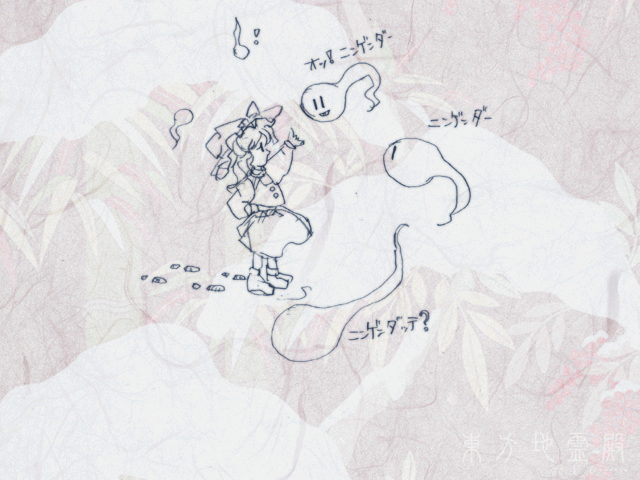 !
オッ! ニンゲンダー
ニンゲンダー
ニンゲンダッテ?
東方地霊殿